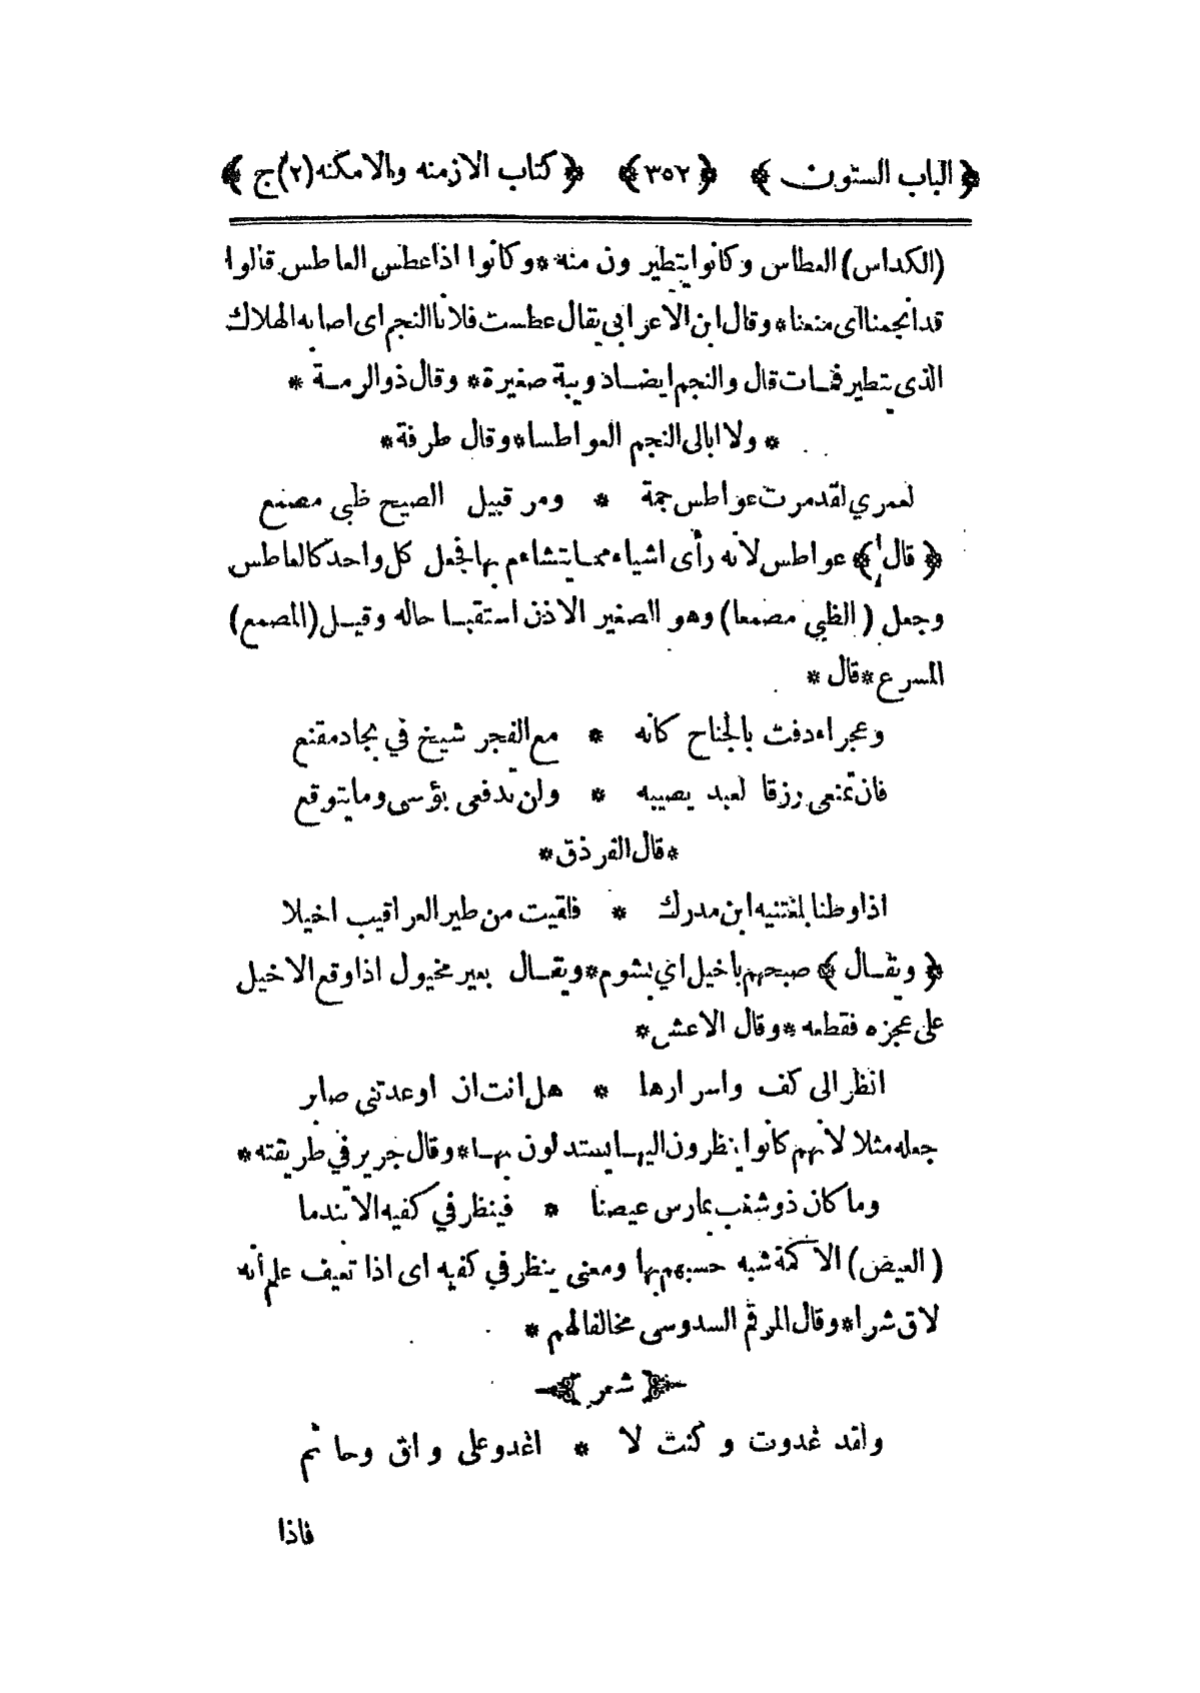 ﴿ الباب الستون ﴾ ﴿ ٣٥٢ ﴾ ﴿ كتاب الازمنه والامكنه (٢) ج ﴾
(الكداس) العطاس وكانوا يتطيرون منه * وكانوا اذا عطس العاطس قالوا
قد انجمنا اى منعنا * وقال ابن الاعرابي يقال عطست فلانا النجم اى اصابه الهلاك
الذى يتطير فمات قال والنجم ايضا دويبة صغيرة * وقال ذوالرمة *
* ولا ابالى النجم العواطسا * وقال طرفة *
لعمري لقد مرت عواطس جمة * ومر قبيل الصبح ظبى مصمع
﴿ قال ﴾ عواطس لانه رأى اشياء مما يتشاءم بها فجعل كل واحد كالعاطس
وجعل (الظبي مصمعا) وهو الصغير الاذن استقبا حاله وقيل (المصمع)
المسرع * قال *
وعجراء دفت بالجناح كانه * مع الفجر شيخ في بجاد مقنع
فان تمنعى رزقا لعبد يصيبه * ولن تدفعى بؤسى وما يتوقع
* قال الفرذق *
اذا وطنا بلغتنيه ابن مدرك * فلقيت من طير العراقيب اخيلا
﴿ ويقال ﴾ صبحهم باخيل اي بشوم * ويقال بعير مخيول اذا وقع الاخيل
على عجزه فقطعه * وقال الاعش *
انظر الى كف واسرارها * هل انت ان اوعدتنى صابر
جعله مثلا لانهم كانوا ينظرون اليها يستدلون بها * وقال جرير في طريقته *
وما كان ذو شغب يمارس عيصنا * فينظر في كفيه الا تندما
(العيض) الاكمة شبه حسبهم بها ومعنى ينظر في كفيه اى اذا تعيف علم أنه
لاق شرا * وقال المرقم السدوسى مخالفا لهم *
﴿ شعر ﴾
ولقد غدوت و كنت لا * اغدو على واق وحاتم
فاذا